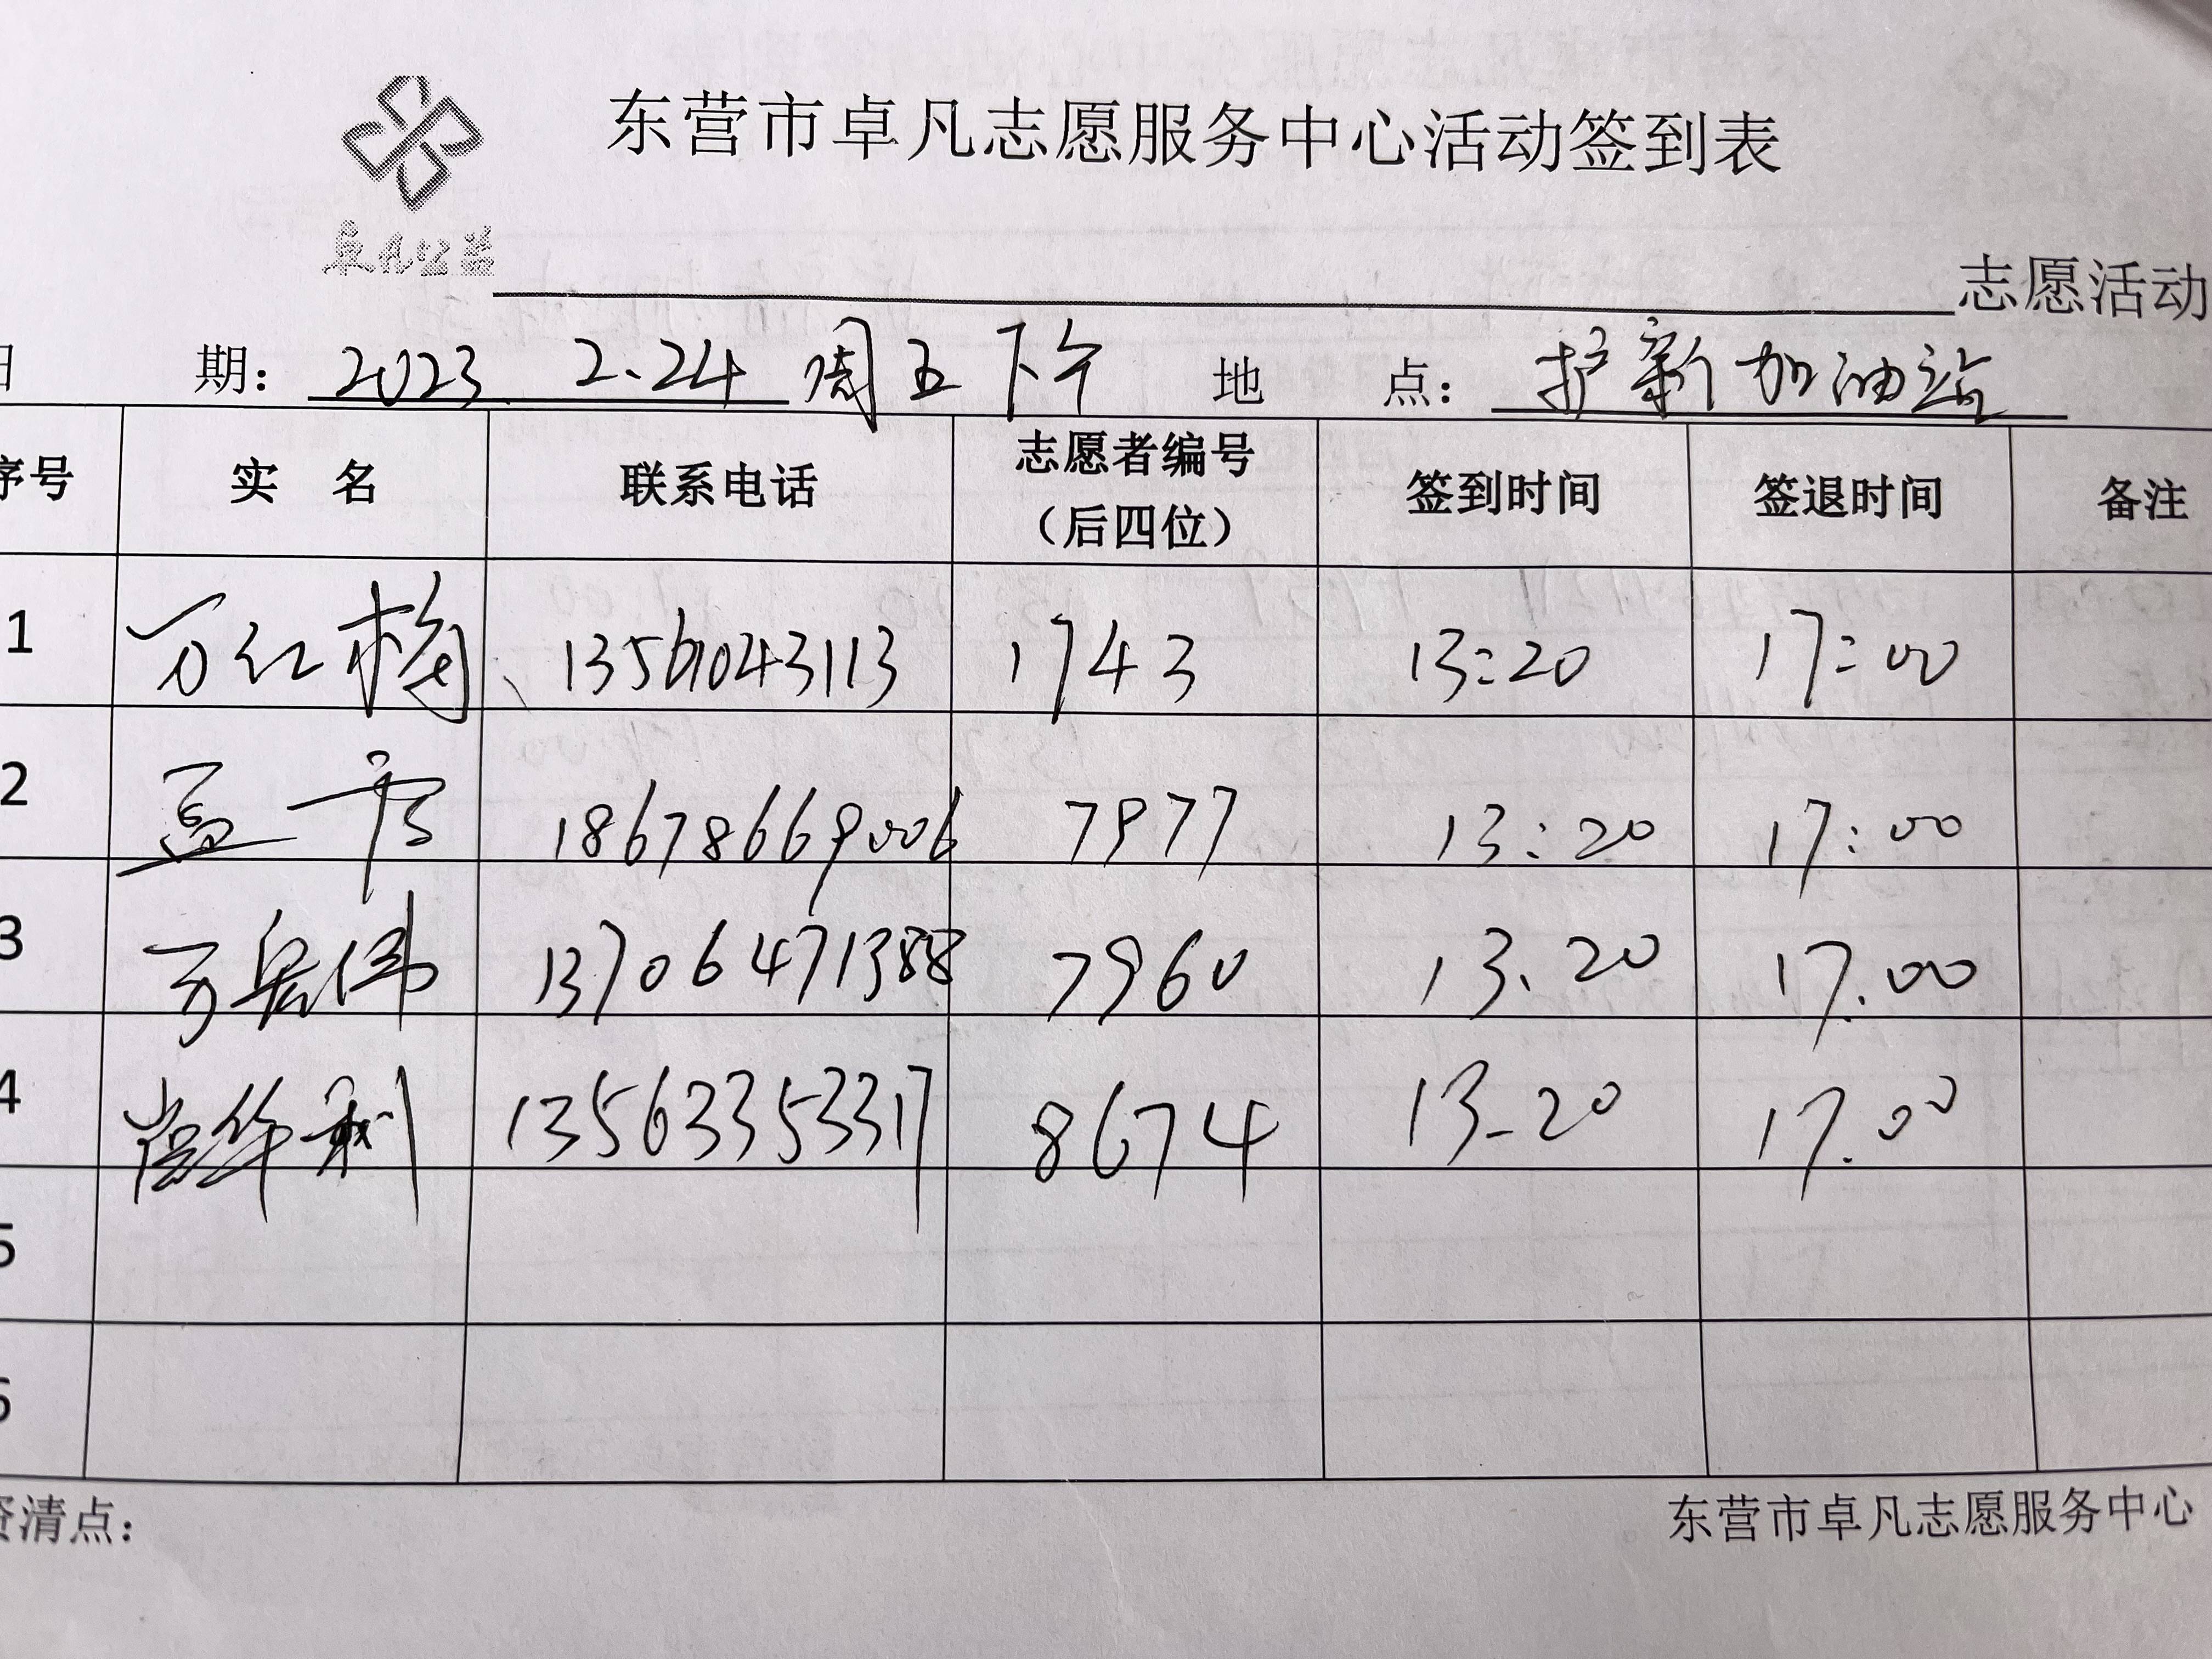 东营市卓凡志愿服务中心活动签到表
卓凡公益
志愿活动
期： 2023. 2.24 周五下午 地 点： 护新加油站
序号 实 名 联系电话 志愿者编号（后四位） 签到时间 签退时间 备注
1 万红梅 1743 13:20 17:00
2 18678669006 7977 13:20 17:00
3 13706471388 7960 13.20 17.00
4 13563353317 8674 13-20 17.00
5
6
资清点：
东营市卓凡志愿服务中心